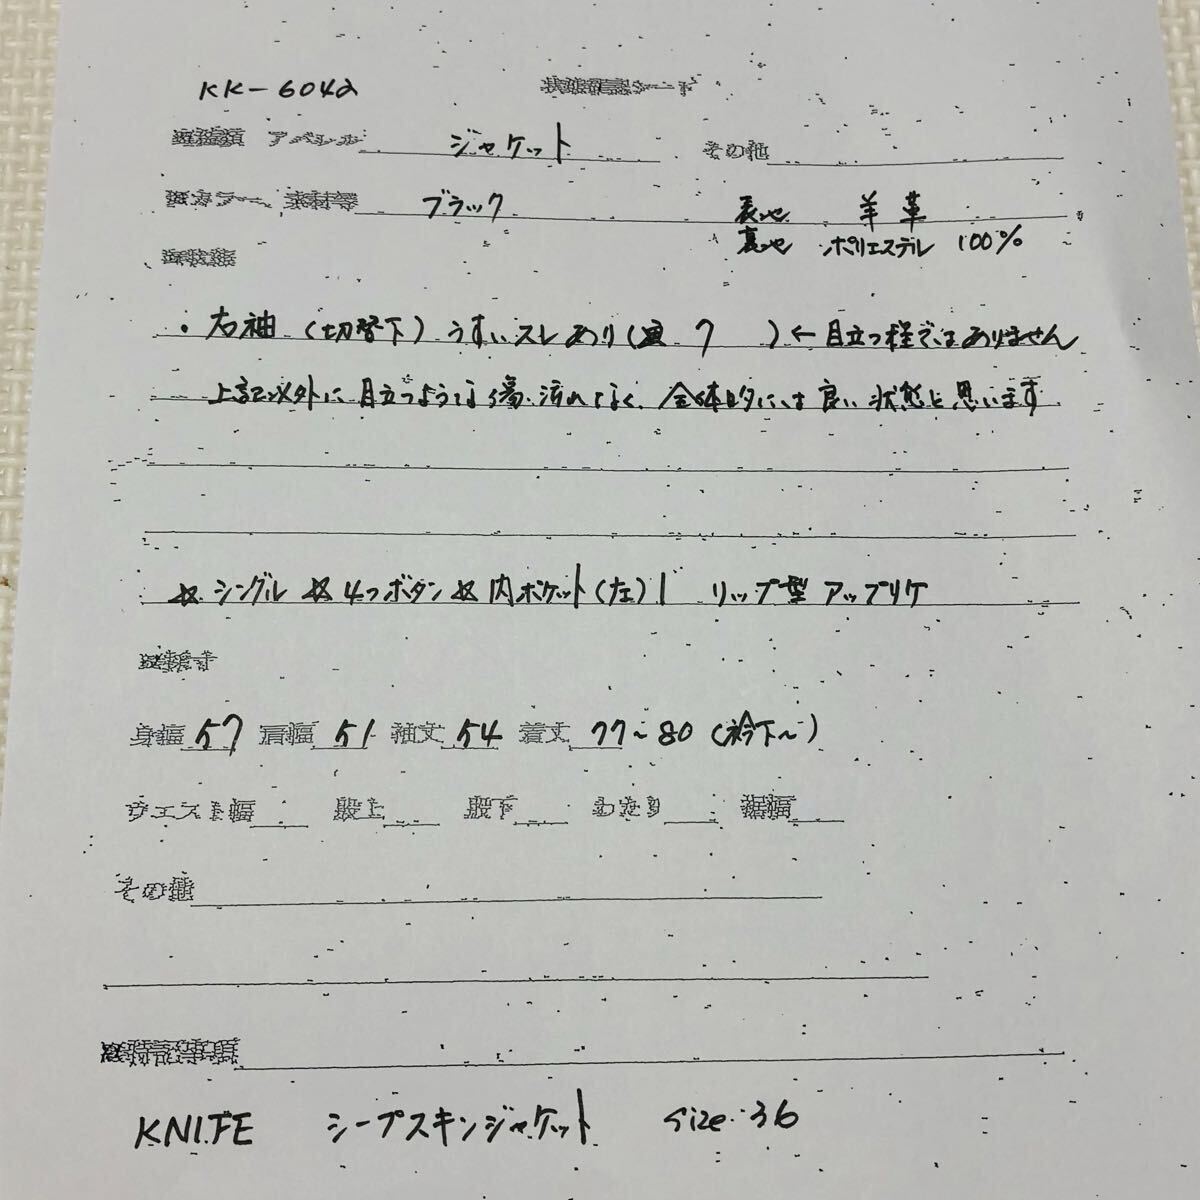 KK-6042 状態確認シート
アパレル ジャケット その他
カラー、素材等 ブラック 表地 羊革
裏地 ポリエステル 100%
・右袖 (切替下) うすいスレあり ( 7 ) ← 目立つ程ではありません
上記以外に目立つような傷、汚れはなく、全体的には良い状態と思います
☆シングル ☆4つボタン ☆内ポケット(左)1 リップ型アップリケ
身幅 57 肩幅 51 袖丈 54 着丈 77~80 (衿下~)
ウエスト幅 股上 股下 わたり 裾幅
その他
特記事項
KNIFE シープスキンジャケット size.36